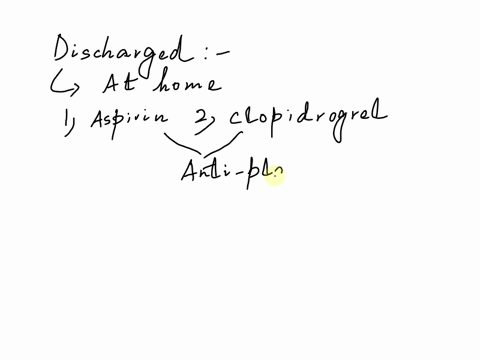 Discharged :-
↳ At home
1, Aspirin 2, Clopidrogrel
Anti-pla